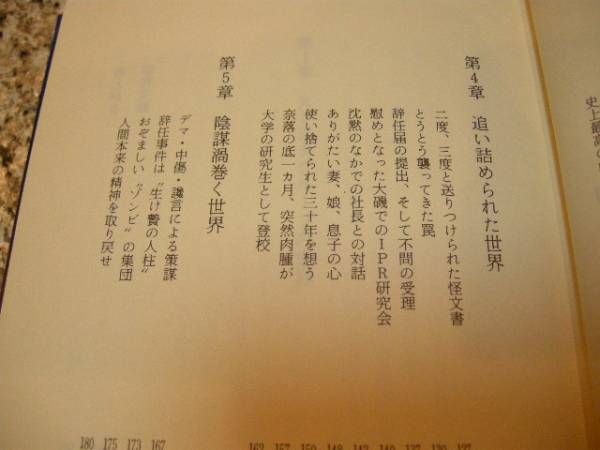 史上最高の
第4章 追い詰められた世界
二度、三度と送りつけられた怪文書
とうとう襲ってきた罠
辞任届の提出、そして不問の受理
慰めとなった大磯でのIPR研究会
沈黙のなかでの社長との対話
ありがたい妻、娘、息子の心
使い捨てられた三十年を想う
奈落の底一カ月、突然肉腫が
大学の研究生として登校
第5章 陰謀渦巻く世界
デマ・中傷・讒言による策謀
辞任事件は〝生け贄の人柱〟
おぞましい〝ゾンビ〟の集団
人間本来の精神を取り戻せ
167
173
175
180